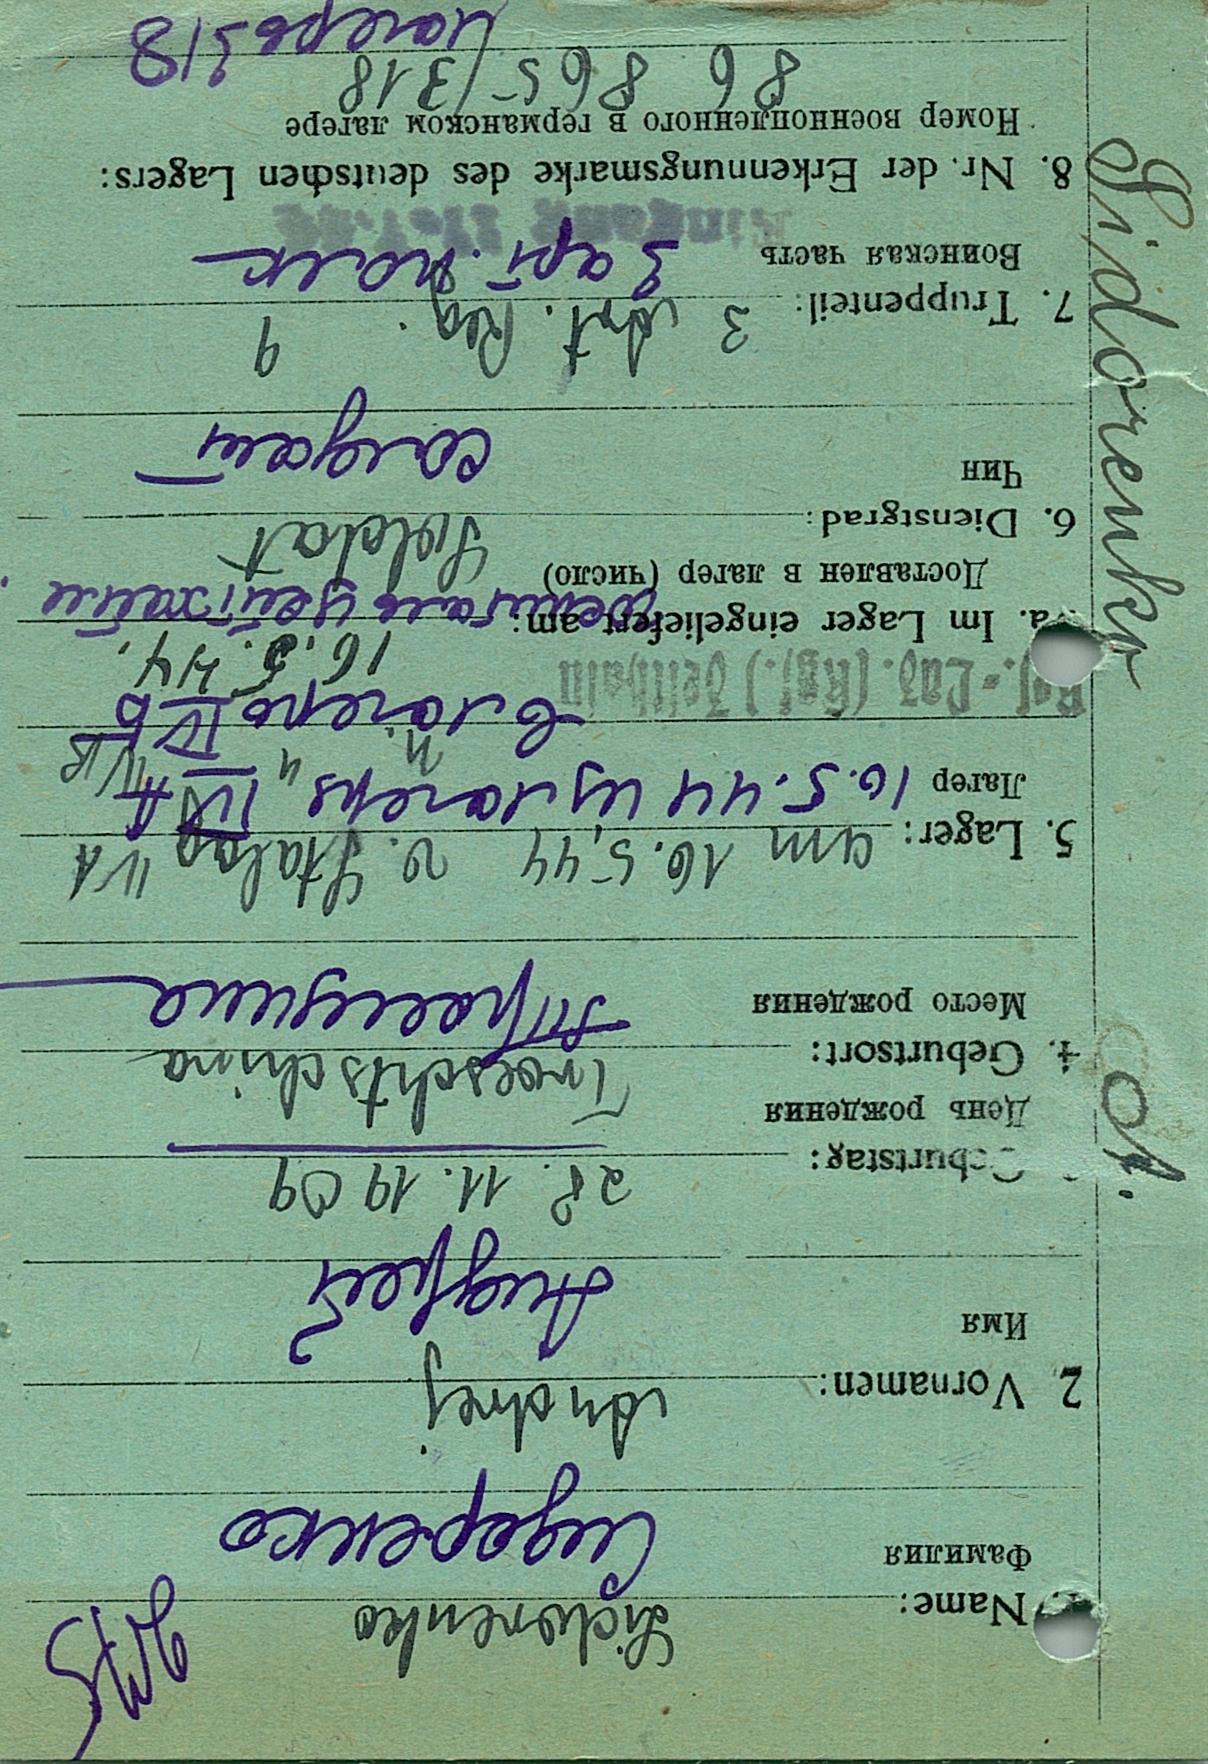 Sidorenko A.
1. Name: Sidorenko
Фамилия Сидоренко
2. Vornamen: Andrej
Имя Андрей
Geburtstag: 28. 11. 1909
День рождения
4. Geburtsort: Troeschtschina
Место рождения
5. Lager: am 16.5.44 v. Stalag IV A
Лагер 16.5.44 из лагеря IV A
n. IV B
в лагерь IV Б
Res.-Laz. (Kgf.) Zeithain
a. Im Lager eingeliefert am: 16.5.44.
Доставлен в лагер (число)
6. Dienstgrad: Soldat
Чин солдат
7. Truppenteil: 3 Art. Reg. 9
Воинская часть 3 арт. полк
Eingang
8. Nr. der Erkennungsmarke des deutschen Lagers:
Номер военнопленного в германском лагере
86 865/318
лагерь 318